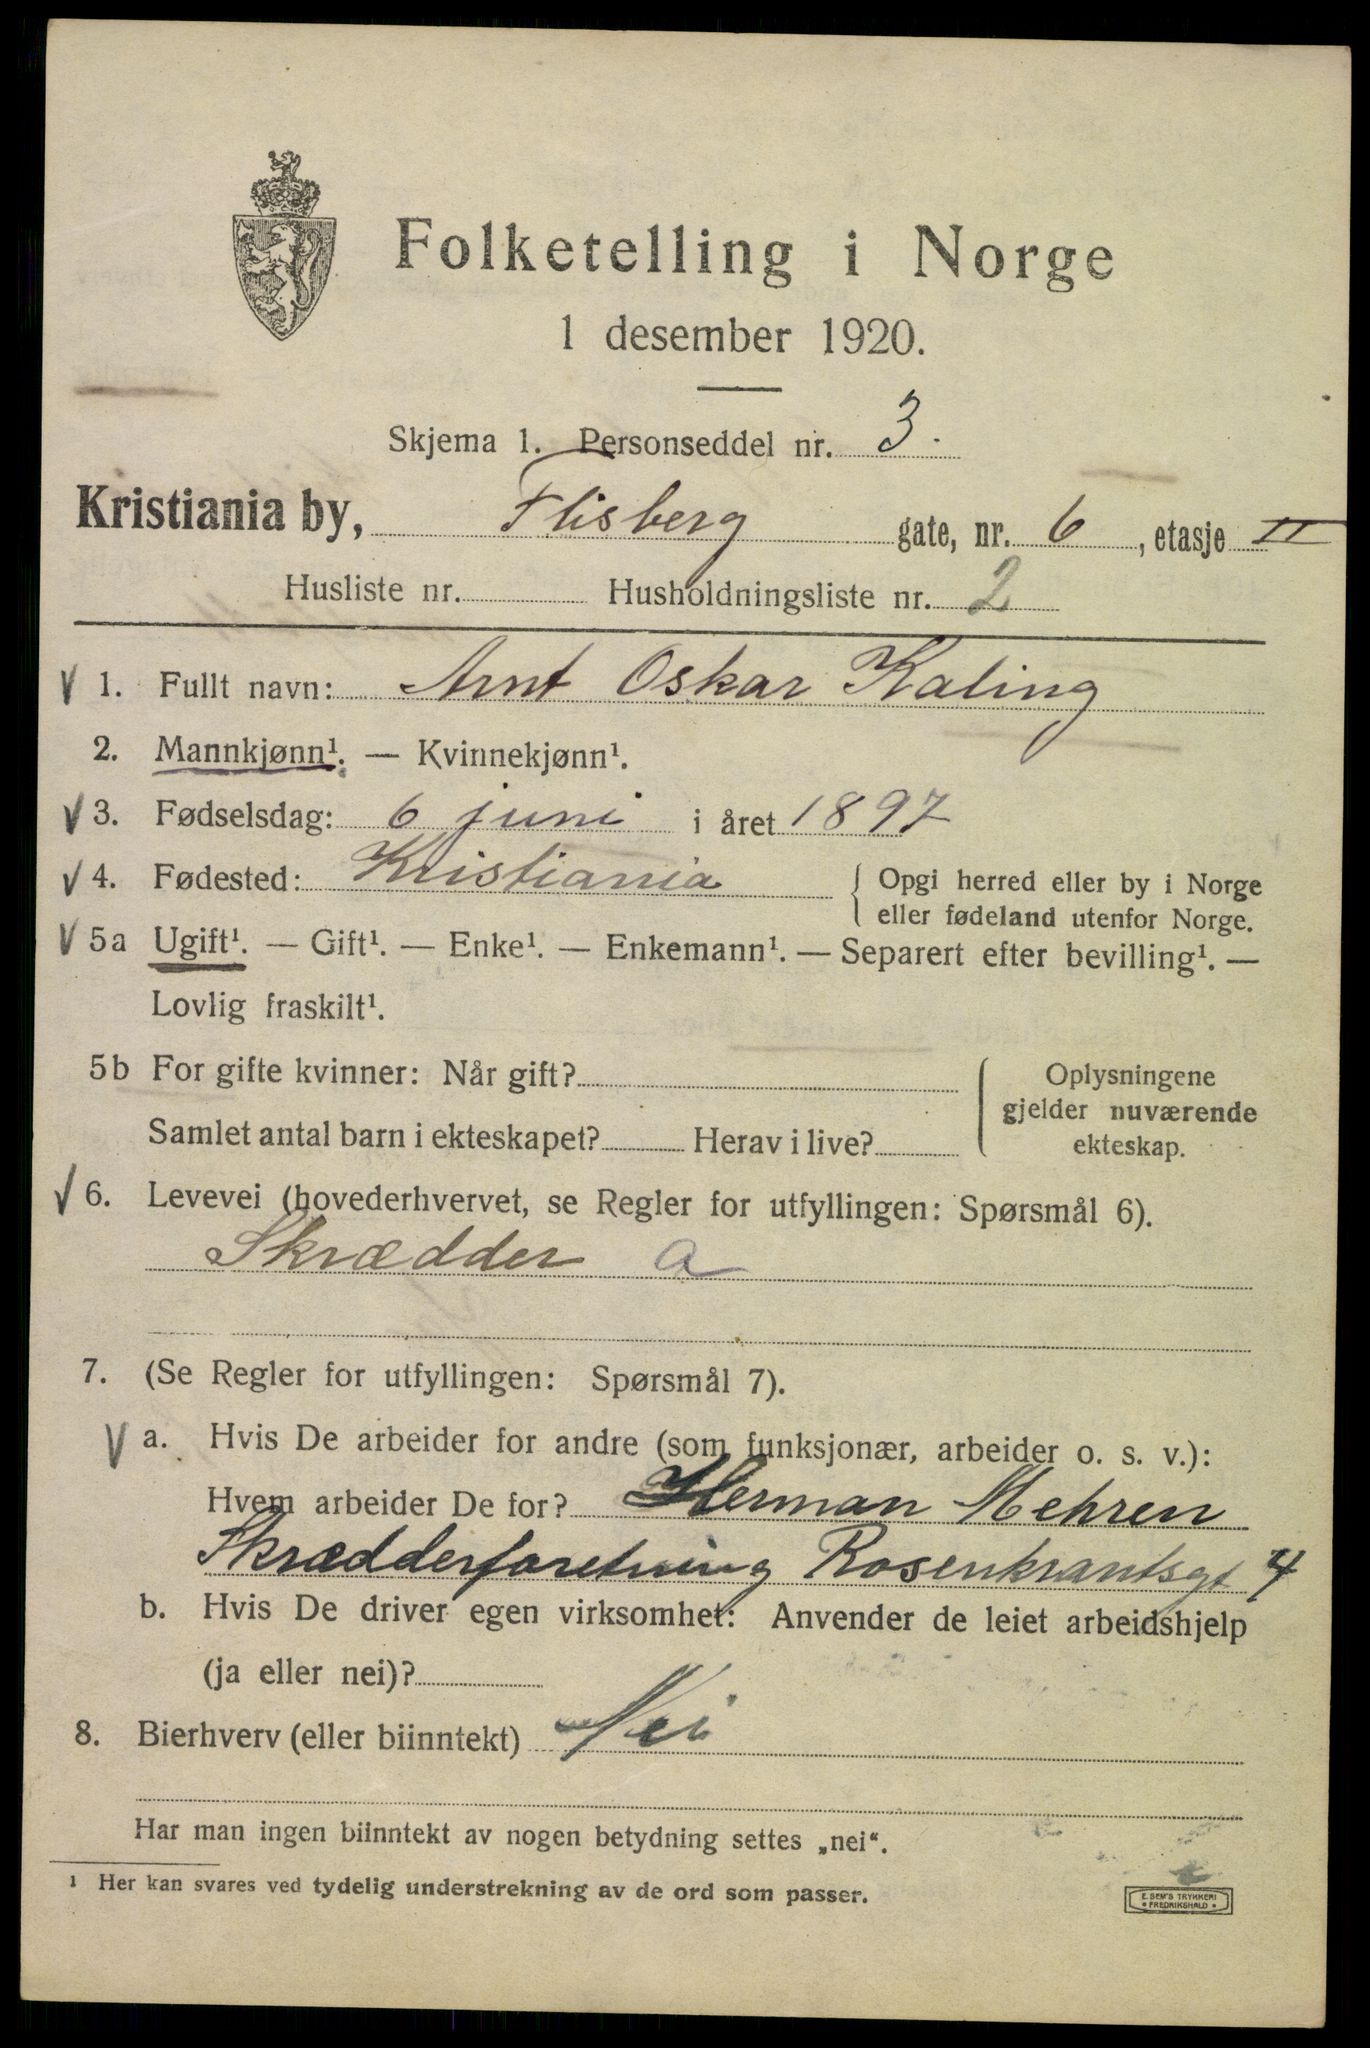 Folketelling i Norge
1 desember 1920.
Skjema 1. Personseddel nr. 3.
Kristiania by, Flisberg gate, nr. 6, etasje II
Husliste nr. Husholdningsliste nr. 2
V 1. Fullt navn: Arnt Oskar Kaling
2. Mannkjønn¹. — Kvinnekjønn¹.
V 3. Fødselsdag: 6 juni i året 1897
V 4. Fødested: Kristiania { Opgi herred eller by i Norge
eller fødeland utenfor Norge.
V 5a Ugift¹. — Gift¹. — Enke¹. — Enkemann¹. — Separert efter bevilling¹. —
Lovlig fraskilt¹.
5b For gifte kvinner: Når gift? { Oplysningene
gjelder nuværende
Samlet antal barn i ekteskapet? Herav i live? ekteskap.
V 6. Levevei (hovederhvervet, se Regler for utfyllingen: Spørsmål 6).
Skrædder a
7. (Se Regler for utfyllingen: Spørsmål 7).
V a. Hvis De arbeider for andre (som funksjonær, arbeider o. s. v.):
Hvem arbeider De for? Herman Mehren
Skrædderforetning Rosenkrantsgt 4
b. Hvis De driver egen virksomhet: Anvender de leiet arbeidshjelp
(ja eller nei)?
8. Bierhverv (eller biinntekt) Nei
Har man ingen biinntekt av nogen betydning settes „nei“.
¹ Her kan svares ved tydelig understrekning av de ord som passer.
E. SEM'S TRYKKERI
* FREDRIKSHALD *